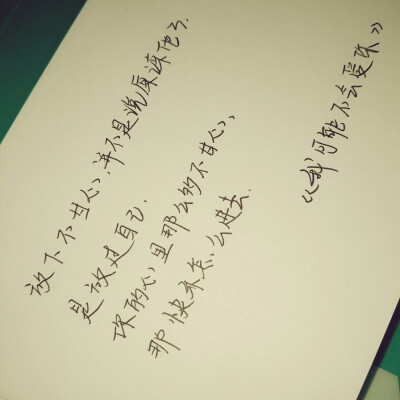 放下不甘心,并不是说原谅他了.
是放过自己.
你的心里那么的不甘心,
那快乐怎么进去.
《我可能不会爱你》